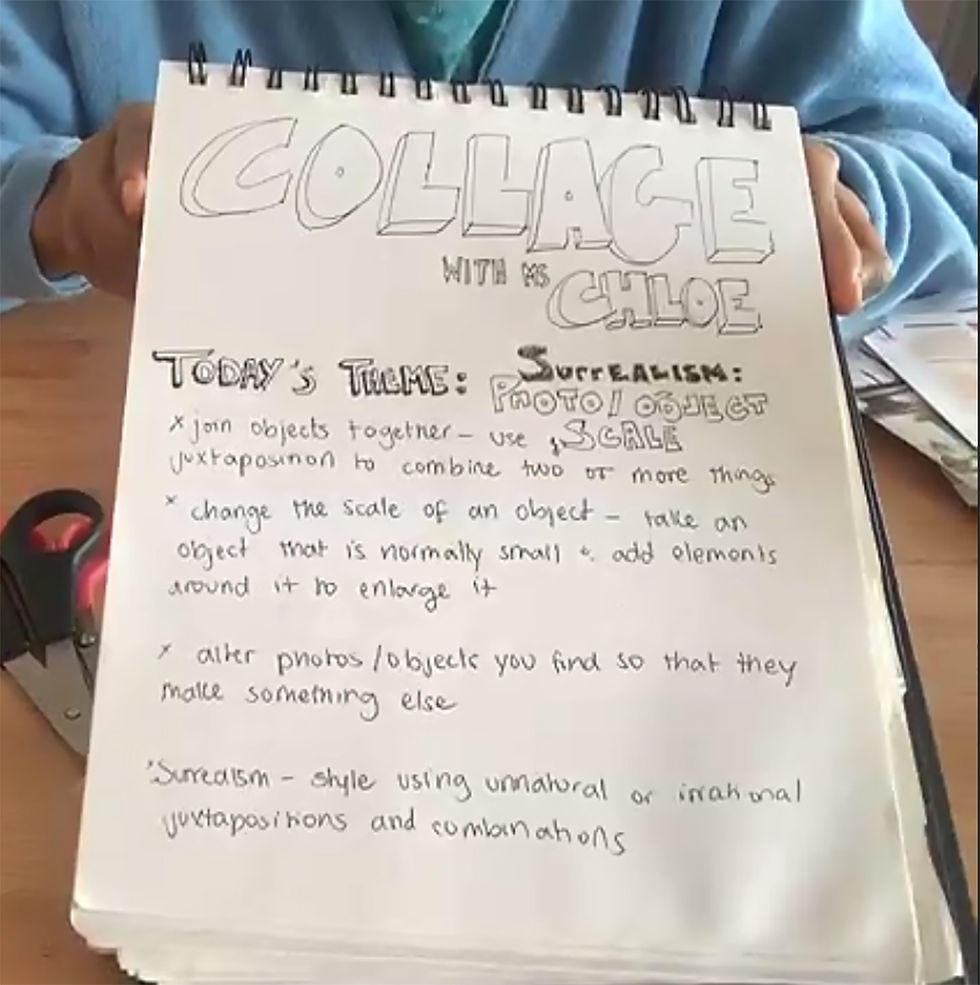 COLLAGE
WITH MS CHLOE
TODAY'S THEME: SurrEALISM:
PHOTO/OBJECT
& SCALE
x join objects together - use
juxtaposition to combine two or more things
x change the scale of an object - take an
object that is normally small & add elements
around it to enlarge it
x alter photos/objects you find so that they
make something else
'Surrealism - style using unnatural or irrational
juxtapositions and combinations